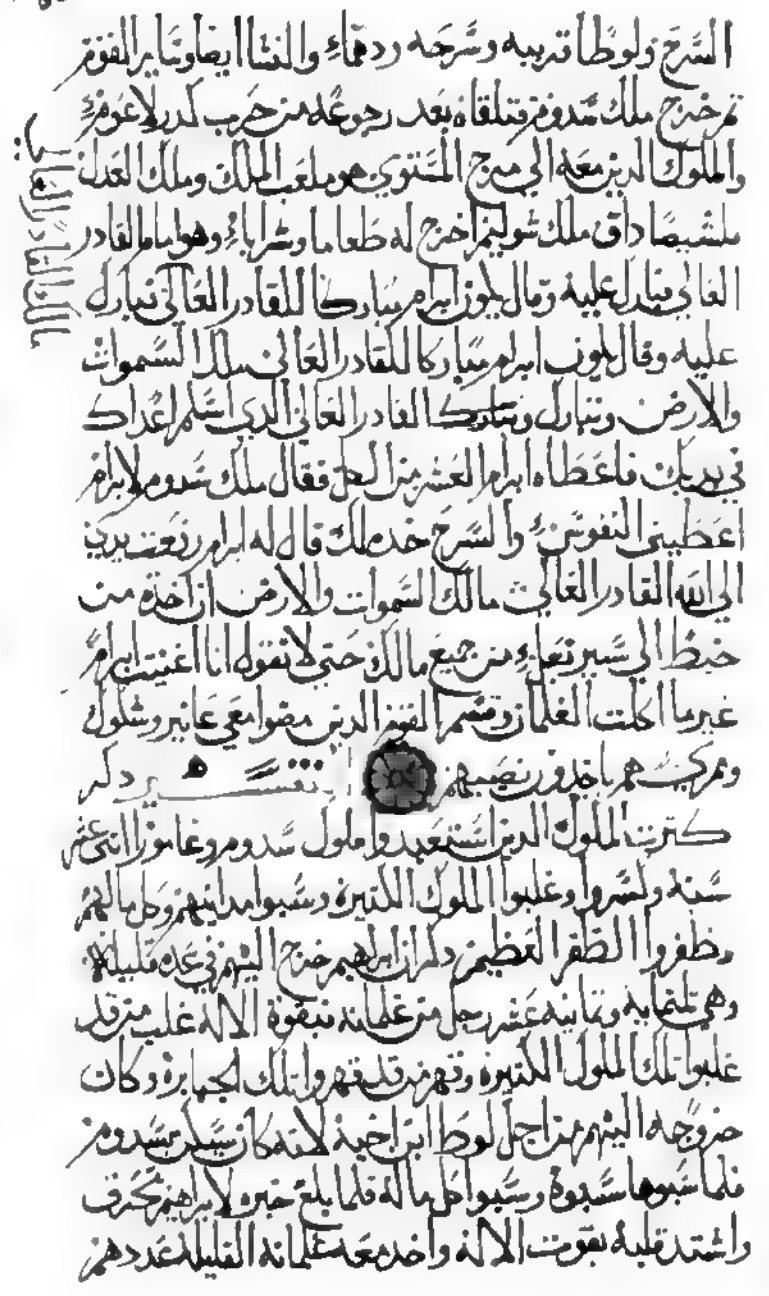 السَّرح ولوطًا قريبه وسَّرحه ردهماءِ والنسا ايضا وسَاير القوم
ثم خرج ملك سَّدوم فتلقاه بَعد رجوعُه من حَرب كدرلاعَومرءِ
والملوك الدين معَه الي مرج المسَتوي هو ملعَب الملك وملك العَدل
ملشيصَاداق ملك شوليم اخرج له طعَاما وشراباءِ وهو اماما لقادر
العَالي فبارك عليه وقال يكون ابرام مبَاركا للقادر العَالي تبارك
عليه وقال يكون ابرام مبَاركا للقادر العَالي ملك السَّموات
والارض وتبارك وتبَارك القادر العَالي الدي اسَلم اعَداك
في يديك فاعَطاه ابرام العَشر من الكل فقال ملك سَدوم لابرام
اعَطيني النفوسَءِ والسَرح خده لك قال له ابرام رفعَت يدي
الي الله القادر العَالي مالك السَموات والارض ان اخدة من
خيط الي سَير نعَلءِ من جميعَ مالك حَتي لا تقول انا اغنيت ابرامَ
غير ما اكلت الغلمان وقسَم القوم الدين مضوا معَي عَانير وشلوك
وممري هم ياخدون نصَيبهم التفسَير دكر
كترت الملوك الدين استعَبدوا ملوك سَّدوم وغامورا اتني عَشر
سَنة وكسَروا وغلبوا الملوك الكتيرة وسَبوا مداينهم وكل مالهم
وظفروا الظفر العَظيم دكر ان ابراهيم خرج اليهم في عَدة قليلة
وهي تلتماية وتمانية عَشر رجل من غلمانه فبقوة الالة غلب من قد
غلبوا تلك الملوك الكتيرة وقهر من قد قهروا تلك الجبابرة وكان
خروجه اليهم من اجل لوط ابن اخية لانه كان سَاكن بسَدوم
فلما سَبوها سَبوة وسَبوا كل ماله فلما بلغ خبره لابراهيم تحرف
واشتد قلبه بقوت الالة واخد معَه غلمانه القليلة عَددهم